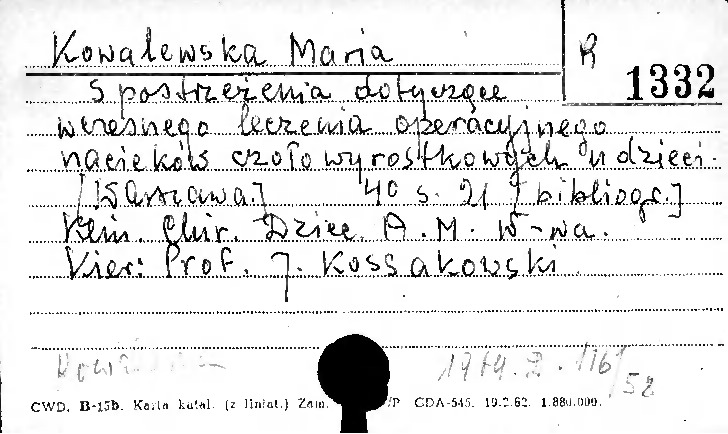 Kowalewska Maria
R 1332
Spostrzeżenia dotyczące
wczesnego leczenia operacyjnego
nacieków czołowyrostkowych u dzieci.
[Warszawa] 40 s. 21 [bibliogr.]
Klin. Chir. Dziec. A.M. W-wa.
Kier: Prof. J. Kossakowski
1964. 2. 116/52
CWD. B-15b. Karta katal. (z liniat.) Zam. CDA-545. 19.2.62. 1.880.000.